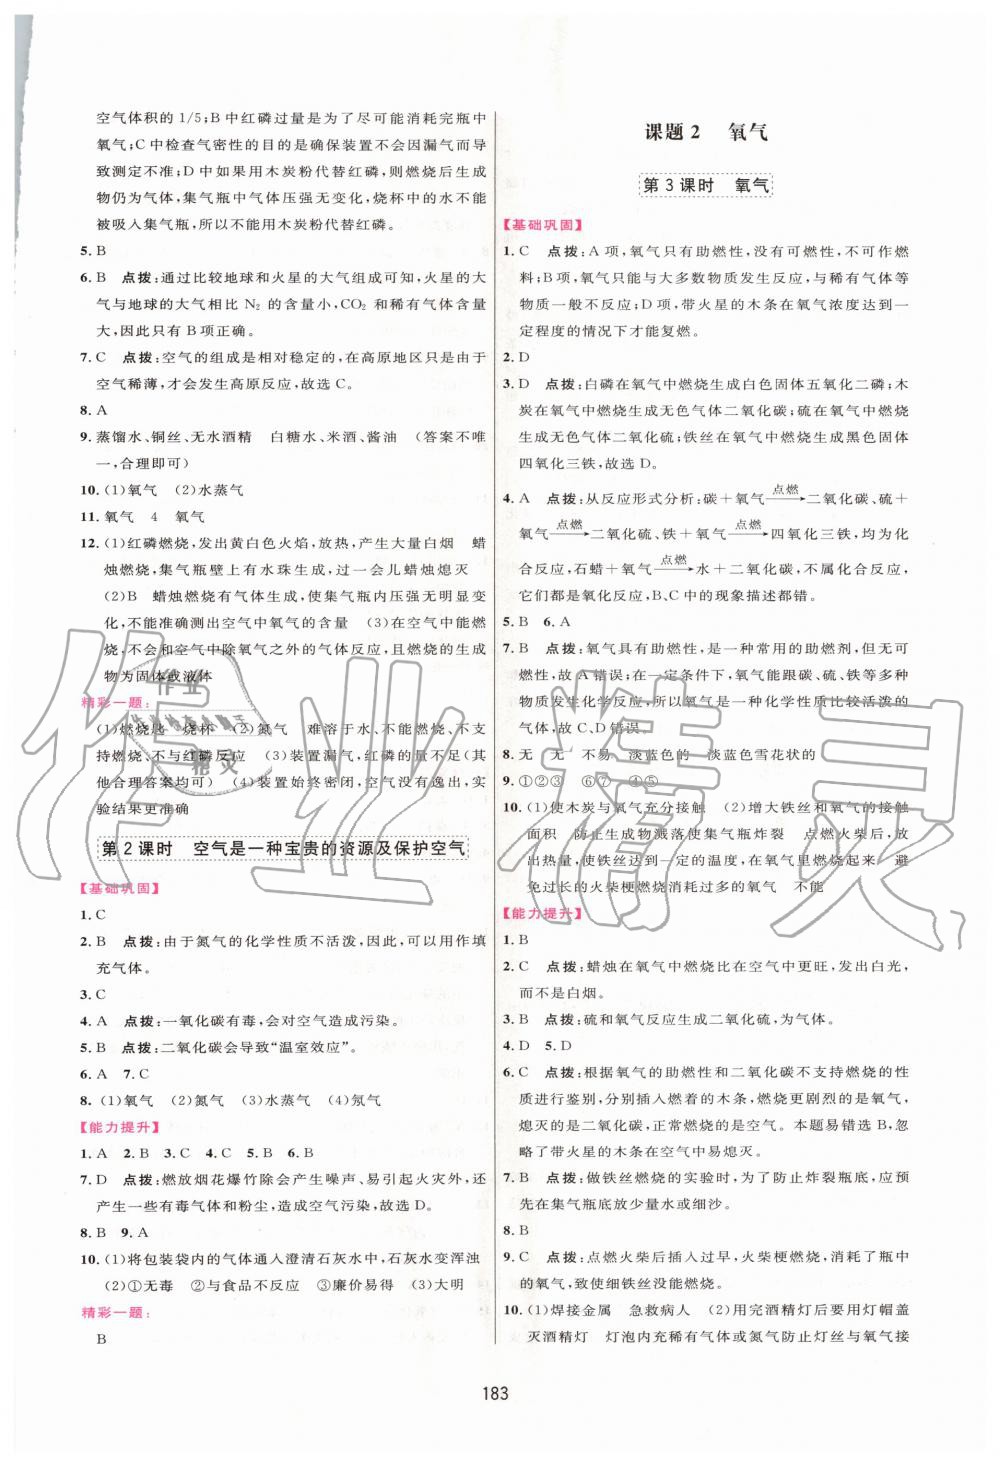 空气体积的 1/5;B 中红磷过量是为了尽可能消耗完瓶中
氧气;C 中检查气密性的目的是确保装置不会因漏气而导
致测定不准;D 中如果用木炭粉代替红磷,则燃烧后生成
物仍为气体,集气瓶中气体压强无变化,烧杯中的水不能
被吸入集气瓶,所以不能用木炭粉代替红磷。
5. B
6. B 点拨:通过比较地球和火星的大气组成可知,火星的大
气与地球的大气相比 N₂ 的含量小,CO₂ 和稀有气体含量
大,因此只有 B 项正确。
7. C 点拨:空气的组成是相对稳定的,在高原地区只是由于
空气稀薄,才会发生高原反应,故选 C。
8. A
9. 蒸馏水、铜丝、无水酒精 白糖水、米酒、酱油 (答案不唯
一,合理即可)
10. (1)氧气 (2)水蒸气
11. 氧气 4 氧气
12. (1)红磷燃烧,发出黄白色火焰,放热,产生大量白烟 蜡
烛燃烧,集气瓶壁上有水珠生成,过一会儿蜡烛熄灭
(2)B 蜡烛燃烧有气体生成,使集气瓶内压强无明显变
化,不能准确测出空气中氧气的含量 (3)在空气中能燃
烧,不会和空气中除氧气之外的气体反应,且燃烧的生成
物为固体或液体
精彩一题:
(1)燃烧匙 烧杯 (2)氮气 难溶于水、不能燃烧、不支
持燃烧、不与红磷反应 (3)装置漏气,红磷的量不足(其
他合理答案均可) (4)装置始终密闭,空气没有逸出,实
验结果更准确
第 2 课时 空气是一种宝贵的资源及保护空气
【基础巩固】
1. C
2. B 点拨:由于氮气的化学性质不活泼,因此,可以用作填
充气体。
3. C
4. A 点拨:一氧化碳有毒,会对空气造成污染。
5. B 点拨:二氧化碳会导致“温室效应”。
6. A 7. C
8. (1)氧气 (2)氮气 (3)水蒸气 (4)氖气
【能力提升】
1. A 2. B 3. C 4. C 5. B 6. B
7. D 点拨:燃放烟花爆竹除会产生噪声、易引起火灾外,还
产生一些有毒气体和粉尘,造成空气污染,故选 D。
8. B 9. A
10. (1)将包装袋内的气体通入澄清石灰水中,石灰水变浑浊
(2)①无毒 ②与食品不反应 ③廉价易得 (3)大明
精彩一题:
B
课题 2 氧气
第 3 课时 氧气
【基础巩固】
1. C 点拨:A 项,氧气只有助燃性,没有可燃性,不可作燃
料;B 项,氧气只能与大多数物质发生反应,与稀有气体等
物质一般不反应;D 项,带火星的木条在氧气浓度达到一
定程度的情况下才能复燃。
2. D
3. D 点拨:白磷在氧气中燃烧生成白色固体五氧化二磷;木
炭在氧气中燃烧生成无色气体二氧化碳;硫在氧气中燃烧
生成无色气体二氧化硫;铁丝在氧气中燃烧生成黑色固体
四氧化三铁,故选 D。
4. A 点拨:从反应形式分析:碳+氧气 点燃→ 二氧化碳、硫+
氧气 点燃→ 二氧化硫、铁+氧气 点燃→ 四氧化三铁,均为化
合反应,石蜡+氧气 点燃→ 水+二氧化碳,不属化合反应,但
它们都是氧化反应,B、C 中的现象描述都错。
5. B 6. A
7. B 点拨:氧气具有助燃性,是一种常用的助燃剂,但无可
燃性,故 A 错误;在一定条件下,氧气能跟碳、硫、铁等多种
物质发生化学反应,所以氧气是一种化学性质比较活泼的
气体,故 C、D 错误。
8. 无 无 不易 淡蓝色的 淡蓝色雪花状的
9. ①②③ ⑥⑦ ④⑤
10. (1)使木炭与氧气充分接触 (2)增大铁丝和氧气的接触
面积 防止生成物溅落使集气瓶炸裂 点燃火柴后,火柴
放出热量,使铁丝达到一定的温度,在氧气里燃烧起来 避
免过长的火柴梗燃烧消耗过多的氧气 不能
【能力提升】
1. B
2. C 点拨:蜡烛在氧气中燃烧比在空气中更旺,发出白光,
而不是白烟。
3. B 点拨:硫和氧气反应生成二氧化硫,为气体。
4. D 5. D
6. C 点拨:根据氧气的助燃性和二氧化碳不支持燃烧的性
质进行鉴别,分别插入燃着的木条,燃烧更剧烈的是氧气,
熄灭的是二氧化碳,正常燃烧的是空气。本题易错选 B,忽
略了带火星的木条在空气中易熄灭。
7. B 点拨:做铁丝燃烧的实验时,为了防止炸裂瓶底,应预
先在集气瓶底部放少量水或细沙。
8. B
9. C 点拨:点燃火柴后插入过早,火柴梗燃烧,消耗了瓶中
的氧气,致使细铁丝没能燃烧。
10. (1)焊接金属 急救病人 (2)用完酒精灯后要用灯帽盖
灭酒精灯 灯泡内充稀有气体或氮气防止灯丝与氧气接
183
作业精灵